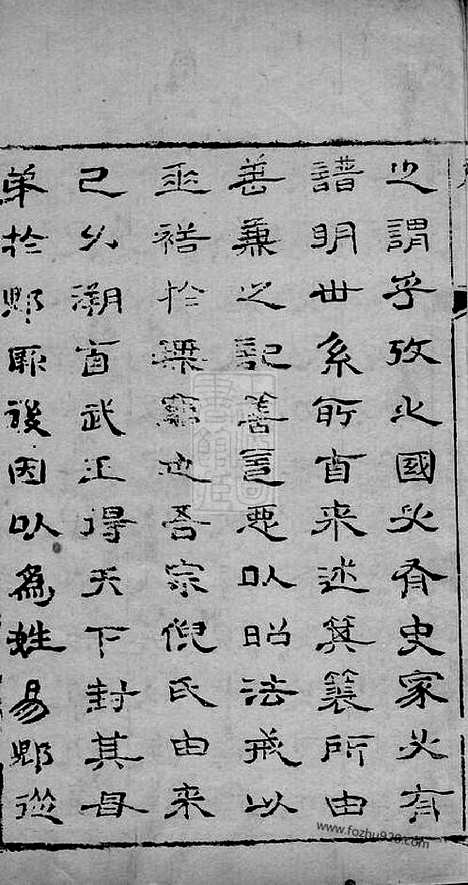 之謂乎攷之國必有史家必有
譜明世系所自来述箕裘所由
善兼之記善言惡以昭法戒以
垂裕於無窮也吾宗倪氏由来
已久溯自武王得天下封其母
弟於郳厥後因以為姓易郳從
www.fozhu920.com